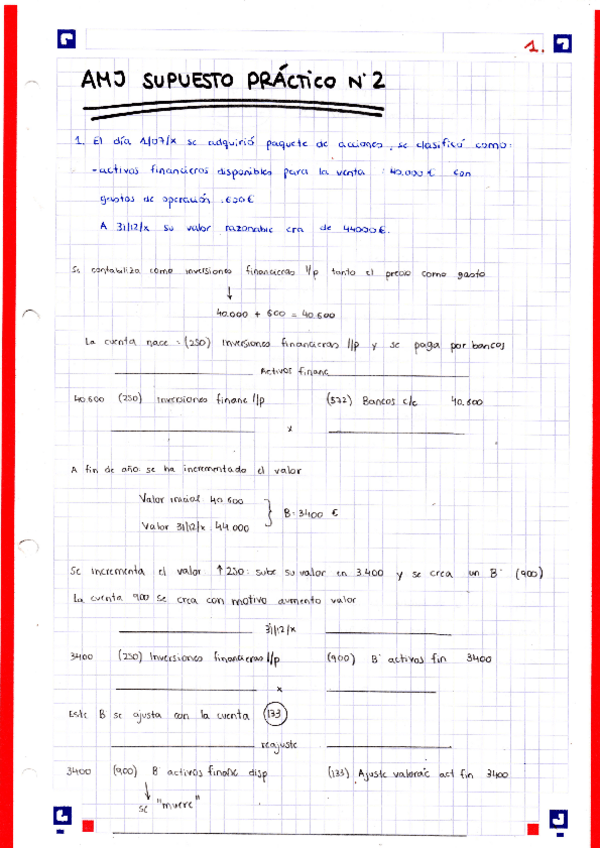 1.
AMJ SUPUESTO PRÁCTICO Nº2
1. El día 1/07/x se adquirió paquete de acciones, se clasificó como:
- activos financieros disponibles para la venta : 40.000€ con
gastos de operación : 600€
A 31/12/x su valor razonable era de 44000€.
Se contabiliza como inversiones financieras l/p tanto el precio como gasto
↓
40.000 + 600 = 40.600
La cuenta nace = (250) Inversiones financieras l/p y se paga por bancos
Activos financ
40.600 (250) Inversiones financ l/p (572) Bancos c/c 40.600
x
A fin de año: se ha incrementado el valor
Valor inicial 40.600
B: 3400 €
Valor 31/12/x : 44.000
Se incrementa el valor ↑ 250: sube su valor en 3.400 y se crea un Bº (900)
La cuenta 900 se crea con motivo aumento valor
31/12/x
3400 (250) Inversiones financieras l/p (900) Bº activos fin 3400
x
Este B se ajusta con la cuenta 133
reajuste
3400 (900) Bº activos financ disp (133) Ajuste valorac act fin 3400
↓
se "muere"